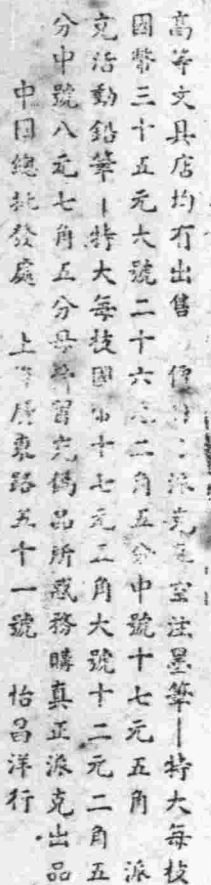 高等文具店均有出售 價目：派克真空注墨筆—特大每枝
國幣三十五元大號二十六元二角五分中號十七元五角 派
克活動鉛筆—特大每枝國幣十七元五角大號十二元二角五
分中號八元七角五分 冒充偽品所惑務購真正派克出品
中國總批發處 上海廣東路五十一號 怡昌洋行